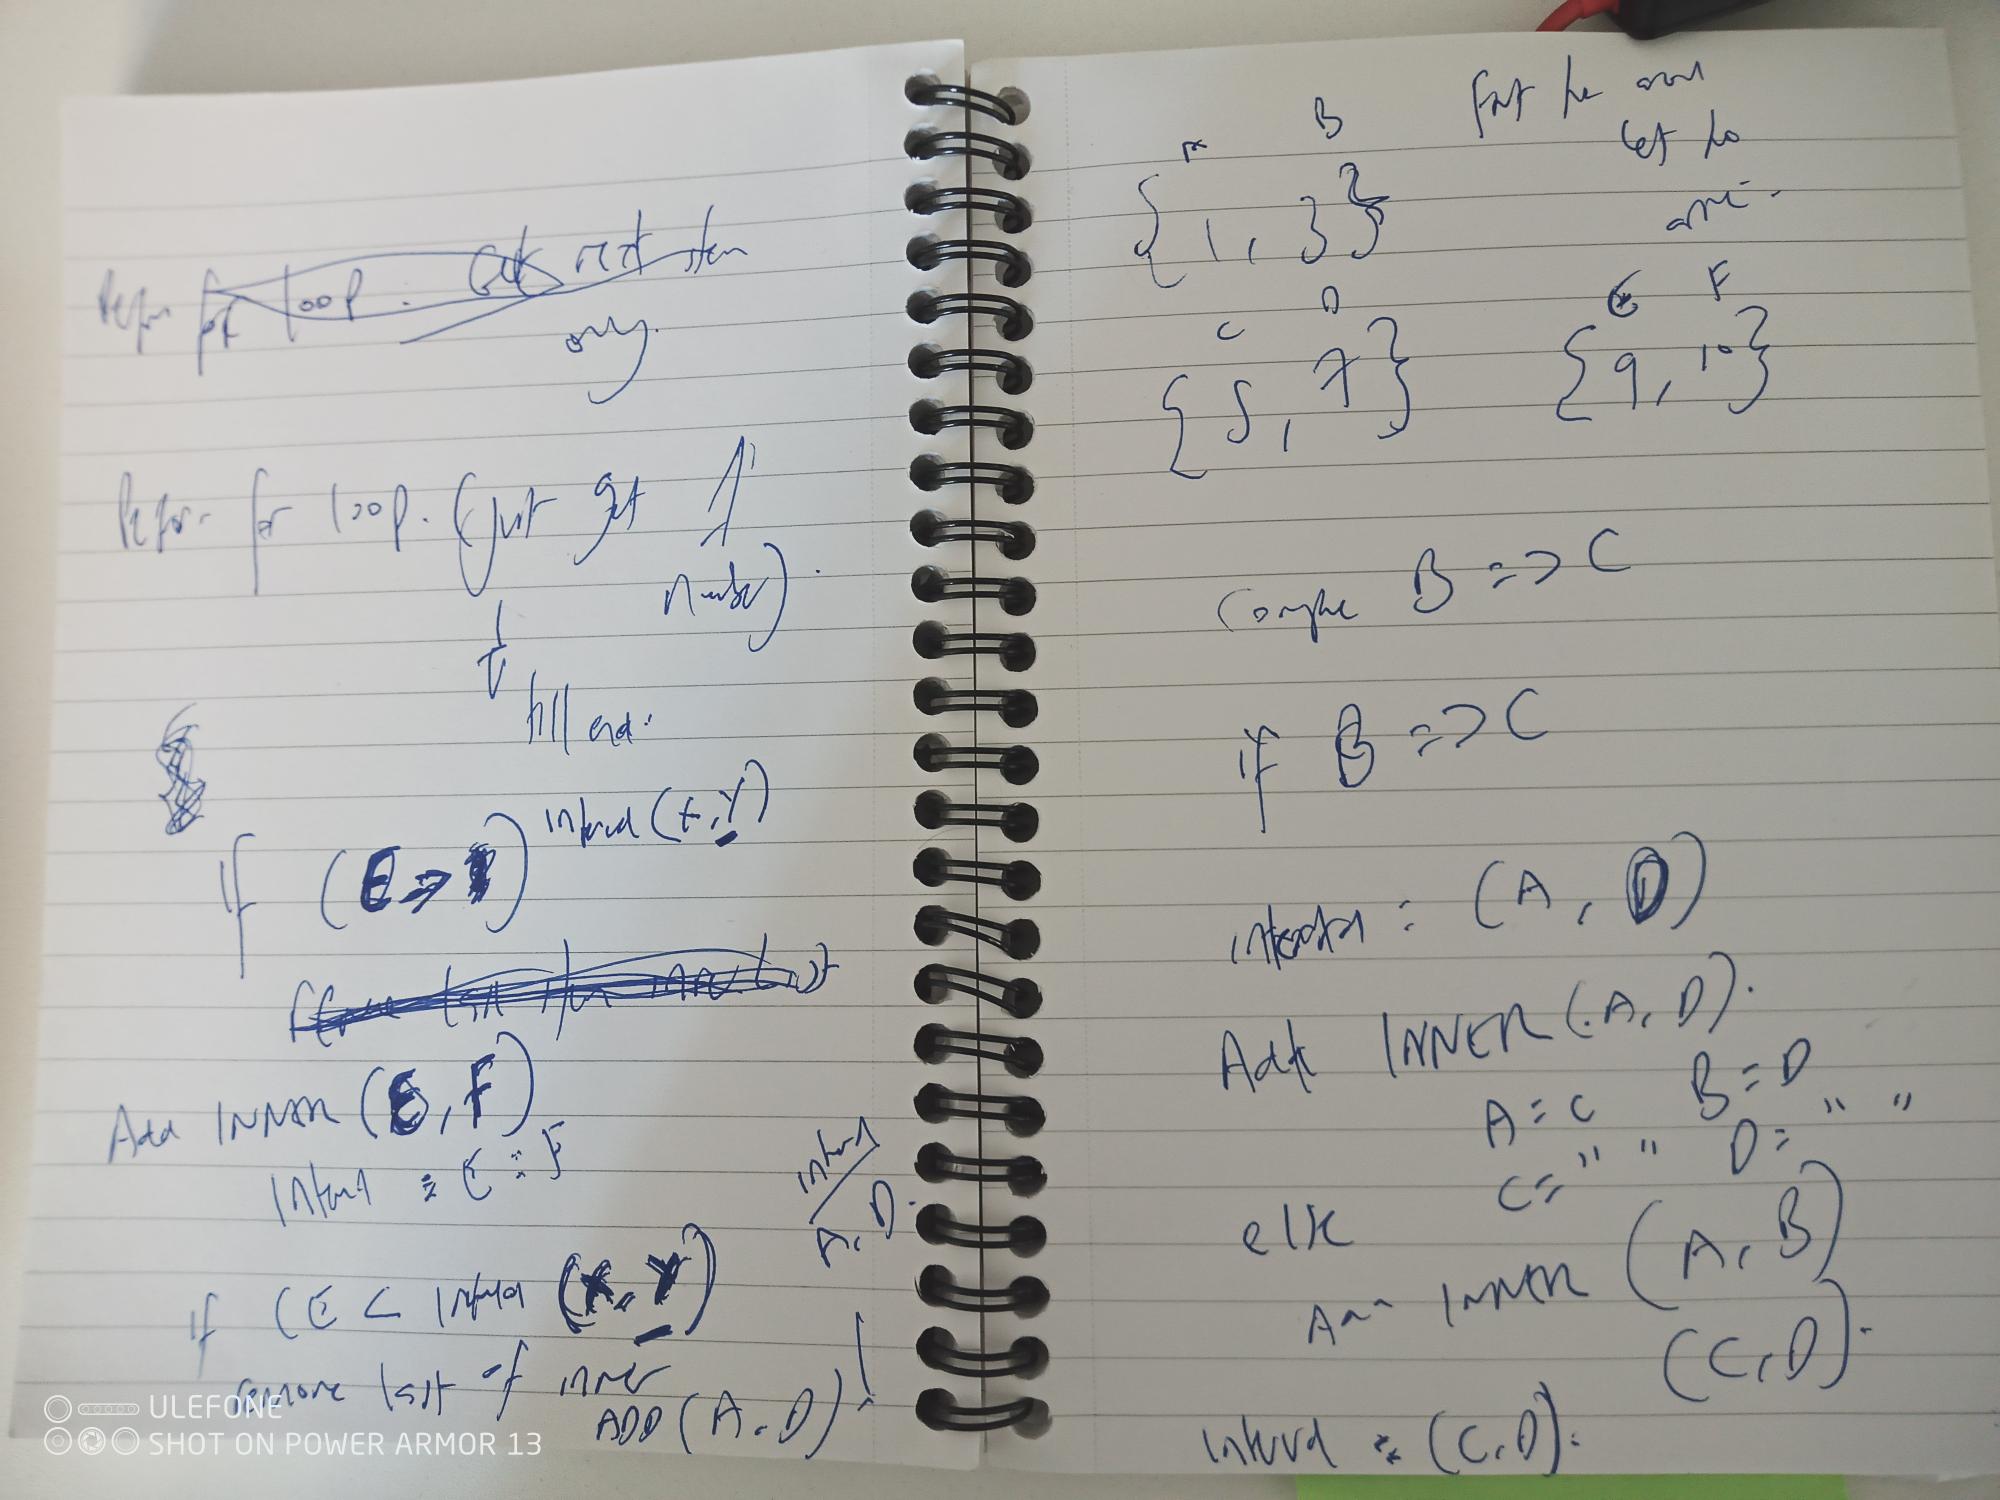 for loop. Get next item
only.
Perform for loop. (just get 1
number).
till end.
interval (X, Y)
if (E => Y)
remove last item inner list
Add INNER (E, F)
Interval = E : F
interval
A, D.
if (E < interval (X, Y)
remove last of inner
ADD (A, D)
A B
{1, 3}
C D E F
{5, 7} {9, 10}
Compare B => C
if B => C
: (A, D)
Add INNER (A, D).
A = C B = D
C = " " D = " "
else
INNER (A, B)
(C, D).
Interval = (C, D).
ULEFONE
SHOT ON POWER ARMOR 13